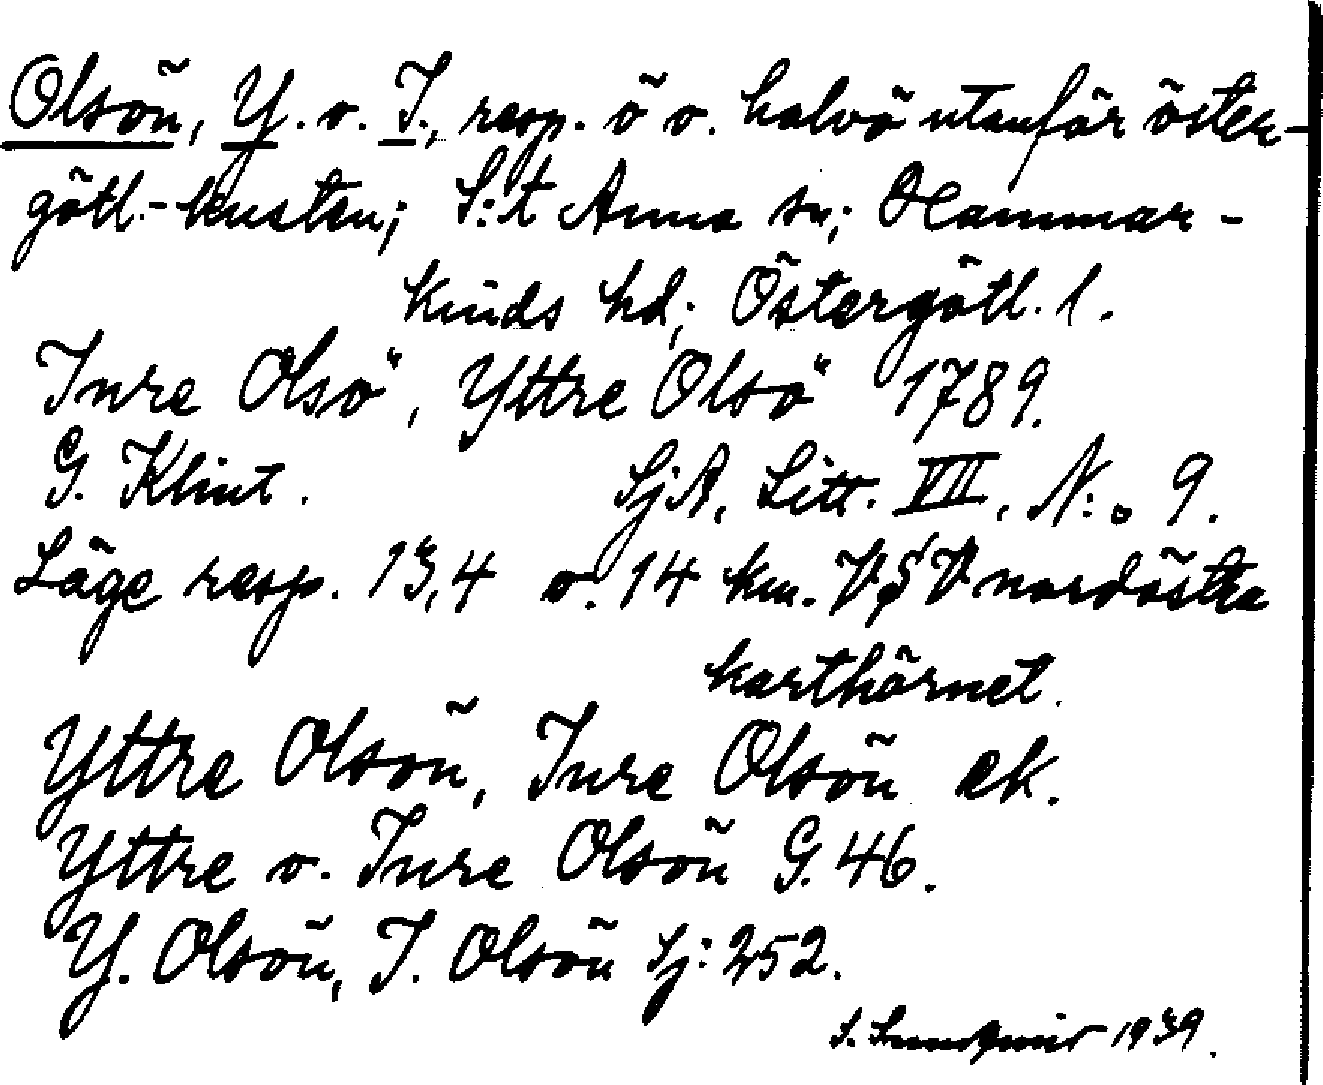 Olsön, Y. o. I., resp. ö o. halvö utanför öster-
götl.-kusten; S:t Anna sn; Hammar-
kinds hd; Östergötl. l.
Inre Olsö, Yttre Olsö 1789.
G. Klint. SjA, Litt. VII, N:o 9.
Läge resp. 13,4 o. 14 km. VSV nordöstra
karthörnet.
Yttre Olsön, Inre Olsön ek.
Yttre o. Inre Olsön G. 46.
Y. Olsön, I. Olsön Sj: 252.
S. 1939.